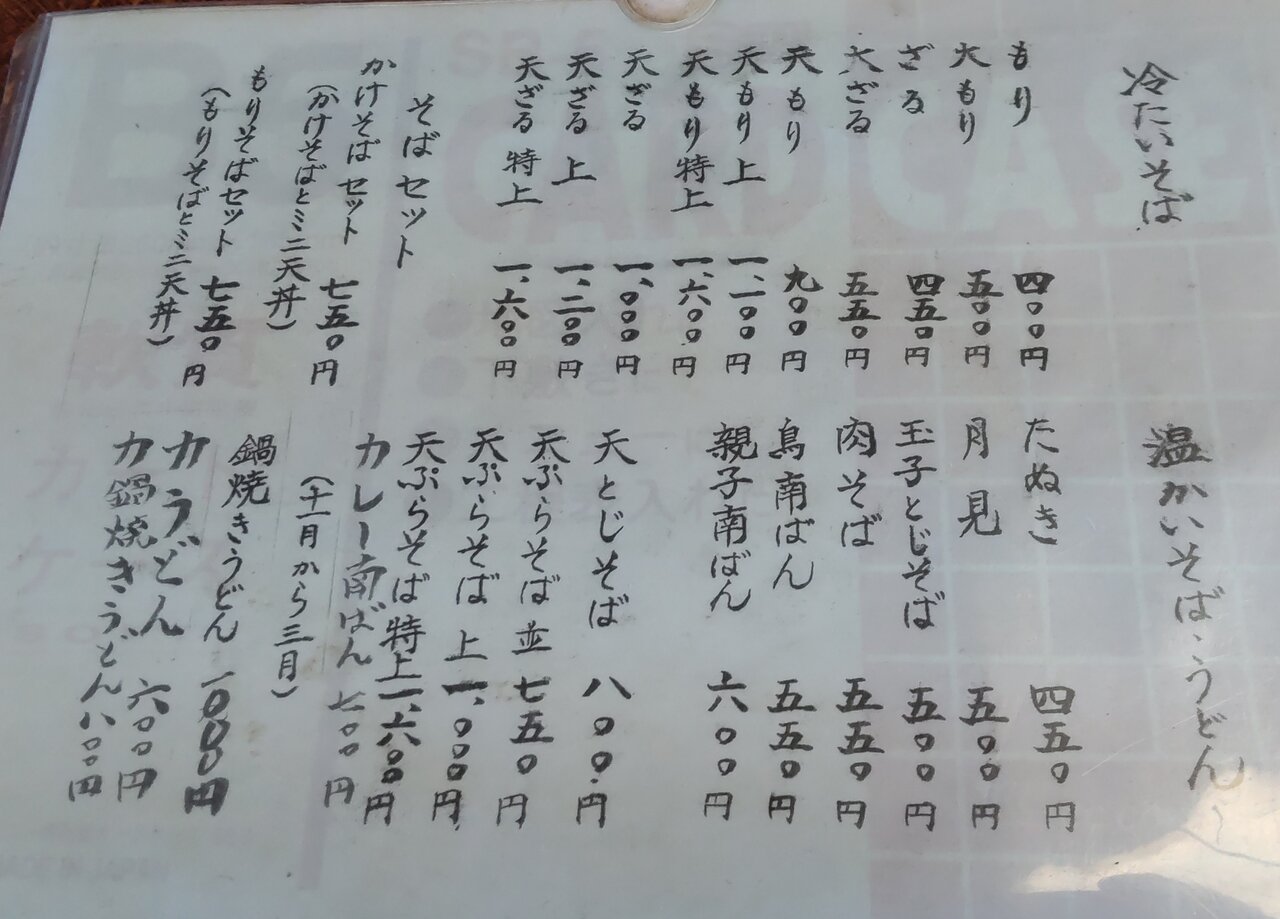 冷たいそば
もり 四〇〇円
大もり 五〇〇円
ざる 四五〇円
大ざる 五五〇円
天もり 九〇〇円
天もり 上 一、一〇〇円
天もり 特上 一、六〇〇円
天ざる 一、〇〇〇円
天ざる 上 一、二〇〇円
天ざる 特上 一、六〇〇円
そばセット
かけそばセット 七五〇円
(かけそばとミニ天丼)
もりそばセット 七五〇円
(もりそばとミニ天丼)
温かいそば・うどん
たぬき 四五〇円
月見 五〇〇円
玉子とじそば 五〇〇円
肉そば 五五〇円
鳥南ばん 五五〇円
親子南ばん 六〇〇円
天とじそば 八〇〇円
天ぷらそば 並 七五〇円
天ぷらそば 上 一、〇〇〇円
天ぷらそば 特上 一、六〇〇円
カレー南ばん 七〇〇円
(十一月から三月)
鍋焼きうどん 一〇〇〇円
力うどん 六〇〇円
力鍋焼きうどん 八〇〇円